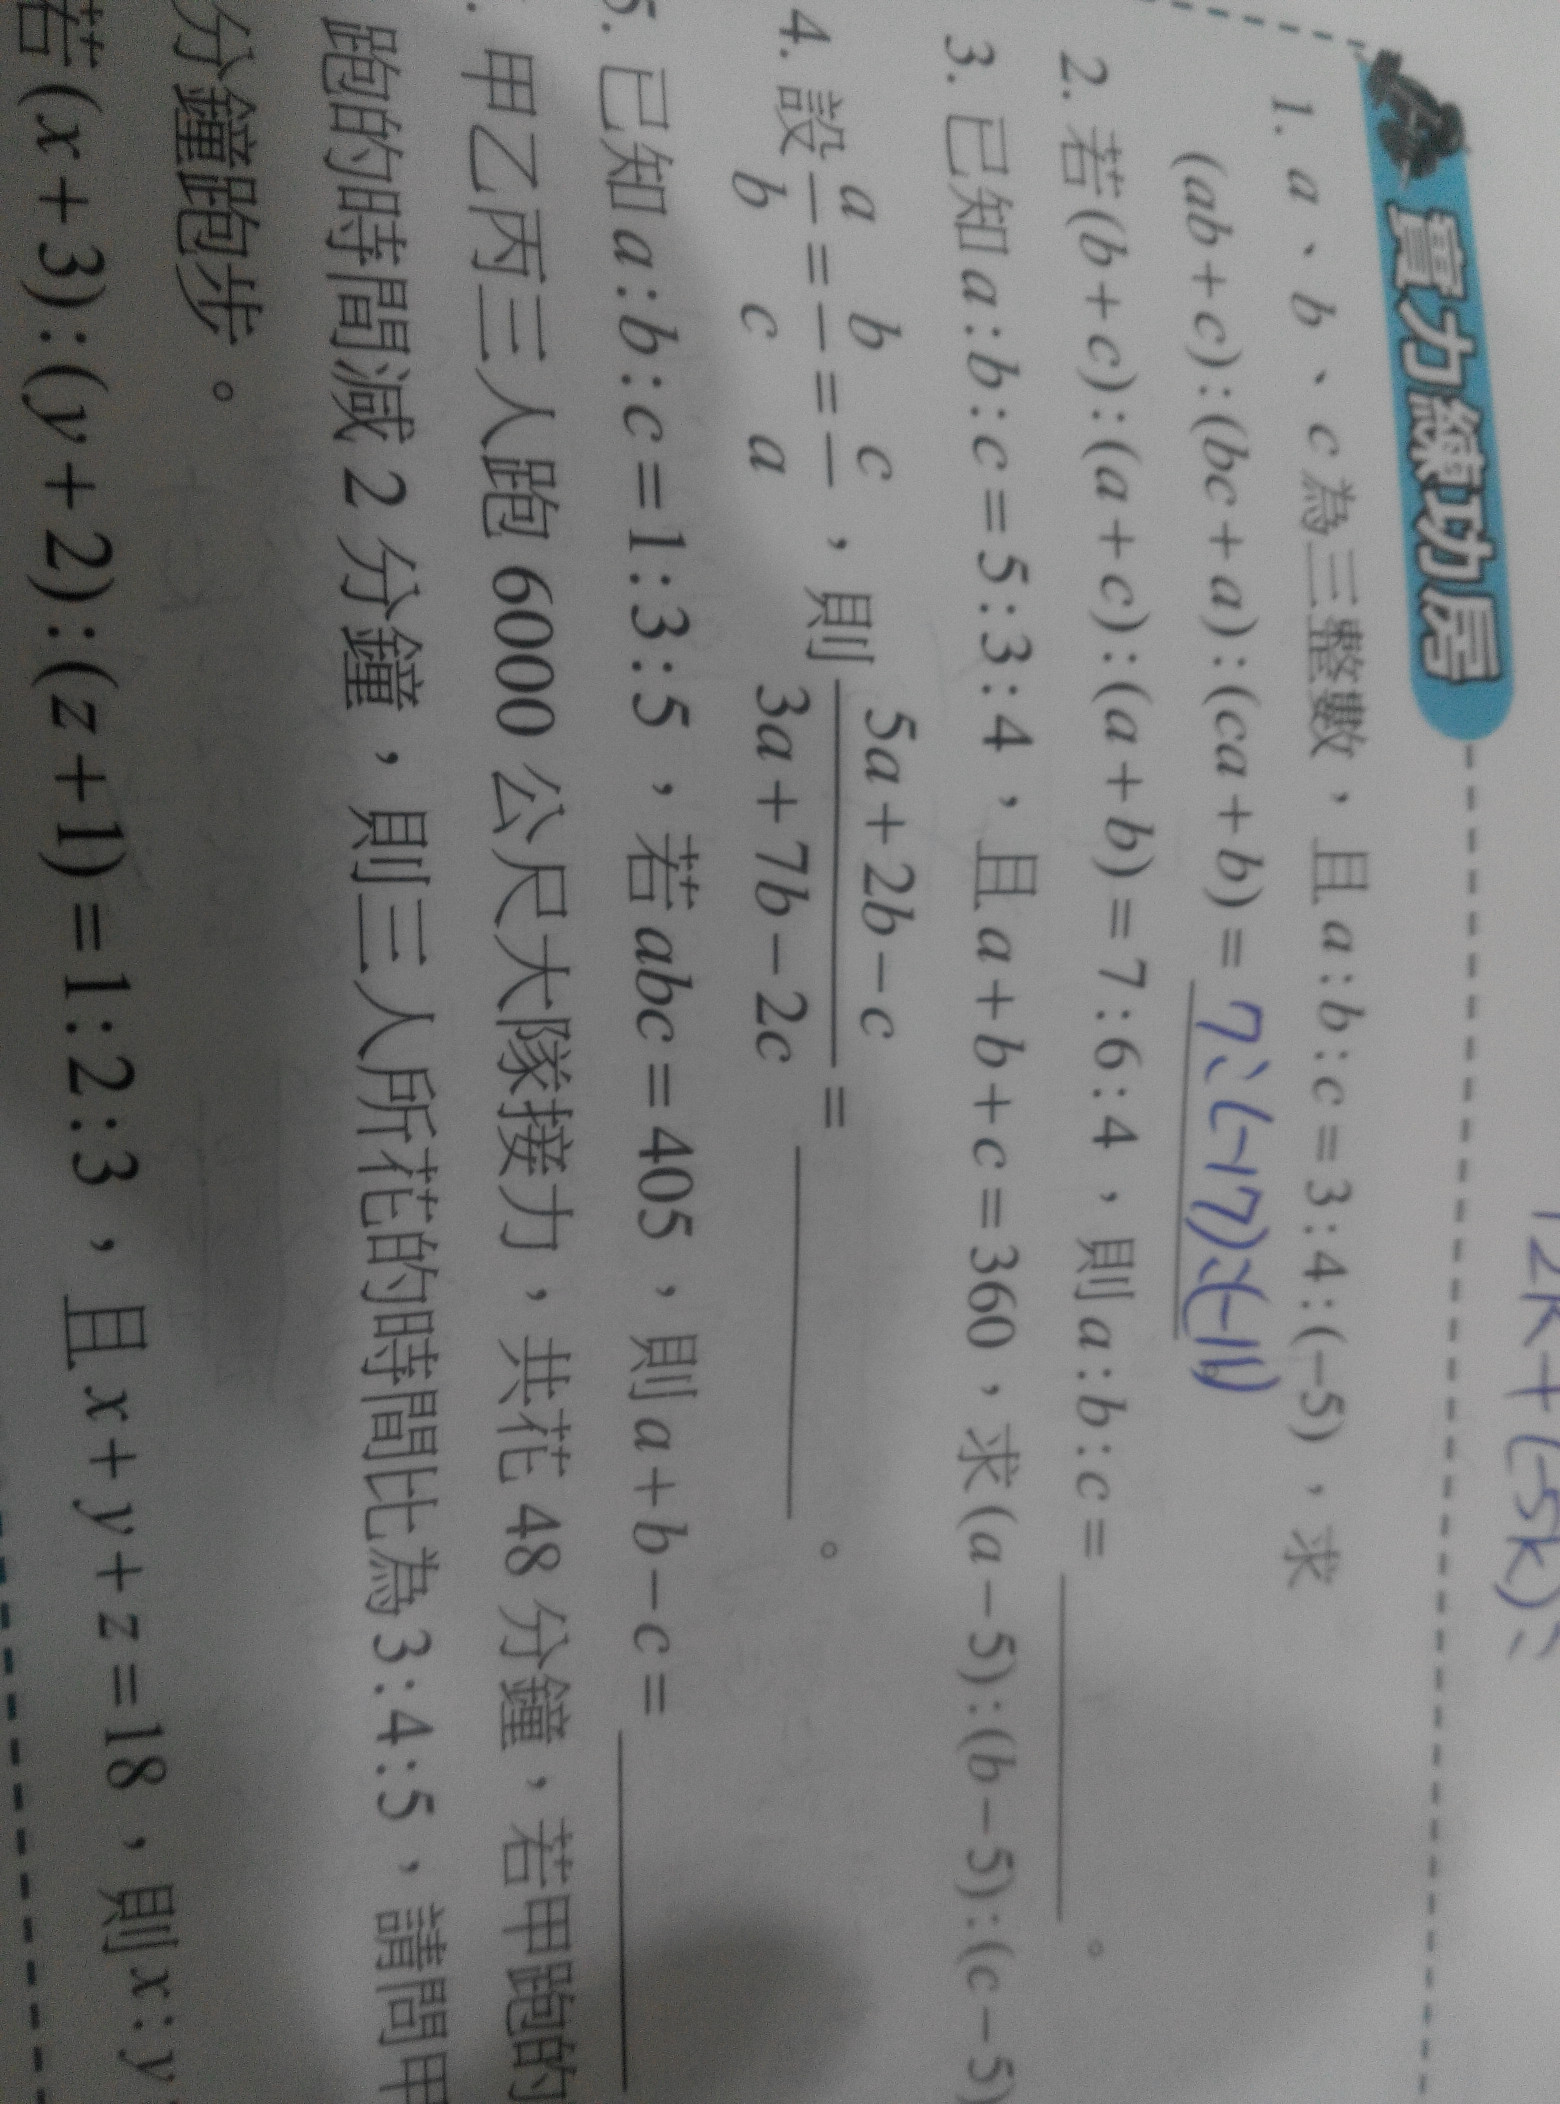 12k+(-5k):
實力練功房
1. a、b、c為三整數，且a:b:c=3:4:(-5)，求
(ab+c):(bc+a):(ca+b)= 7:(-17):(-11)
2. 若(b+c):(a+c):(a+b)=7:6:4，則a:b:c=________。
3. 已知a:b:c=5:3:4，且a+b+c=360，求(a-5):(b-5):(c-5)
4. 設a/b=b/c=c/a，則(5a+2b-c)/(3a+7b-2c)=________。
5. 已知a:b:c=1:3:5，若abc=405，則a+b-c=________
甲乙丙三人跑6000公尺大隊接力，共花48分鐘，若甲跑的
跑的時間減2分鐘，則三人所花的時間比為3:4:5，請問甲
分鐘跑步。
若(x+3):(y+2):(z+1)=1:2:3，且x+y+z=18，則x:y: